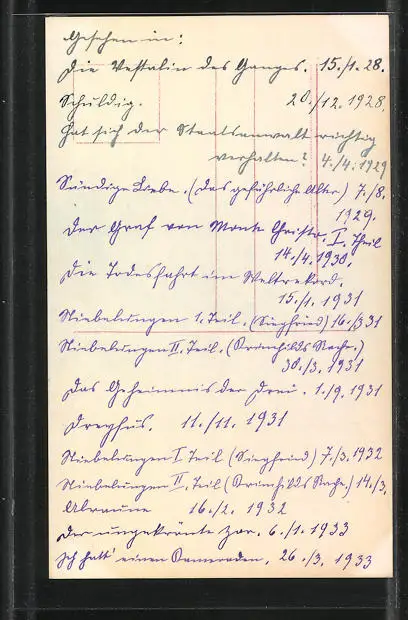 Gesehen in:
Die Vestalin des Ganges. 15./1. 28.
Schuldig. 20./12. 1928.
Hat sich der Staatsanwalt richtig
verhalten? 4./4. 1929
Sündige Liebe. (Das gefährliche Alter) 7./8.
1929.
Der Graf von Monte Christo. I. Theil
14./4. 1930.
Die Todesfahrt im Weltrekord.
15./1. 1931
Niebelungen 1. Teil. (Siegfried) 16./3 31
Niebelungen II. Teil. (Krimhilds Rache.)
30./3. 1931
Das Geheimnis der Drei. 1./9. 1931
Dreyfus. 11./11. 1931
Niebelungen I. Teil (Siegfried) 7./3. 1932
Niebelungen II. Teil (Krimhilds Rache.) 14./3.
Alraune 16./2. 1932
Der ungekrönte Zar. 6./1. 1933
Ich hatt' einen Kameraden. 26./3. 1933